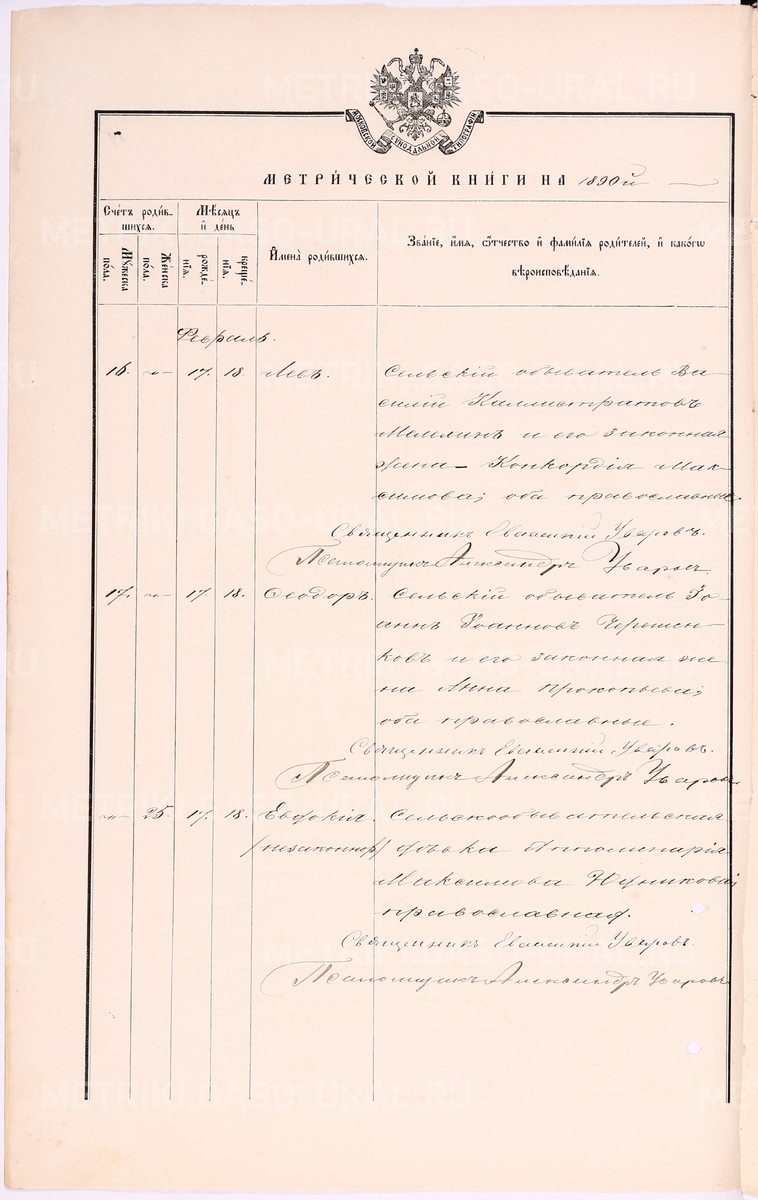 МОСКОВСКОЙ СѴНОДАЛЬНОЙ ТИПОГРАФІИ
МЕТРИ́ЧЕСКОЙ КНИ́ГИ НА 1890й
Сче́тъ роди́в-
шихся.
Мѣ́сяцъ
и҆ де́нь
Му́жеска
по́ла.
Же́нска
по́ла.
рожде́-
нїя.
креще́-
нїя.
И҆мена̀ роди́вшихся.
Зва́нїе, и҆́мя, ѻ҆́тчество и҆ фами́лїя роди́телей, и҆ како́гѡ
вѣроисповѣ́данїя.
Февраль.
16. -"- 17. 18. Левъ. Сельскій обыватель Ва-
силій Каллистратовъ
и его законная
жена – Конкордія Мак-
симова; оба православные.
Священникъ Евгеній Уваровъ.
Псаломщикъ Александръ Уваровъ.
17. -"- 17 18. Ѳеодоръ. Сельскій обыватель Іо-
аннъ Іоанновъ Черемен-
ковъ и его законная же
на Анна Прокопьева;
оба православные.
Священникъ Евгеній Уваровъ.
Псаломщикъ Александръ Уваровъ
-"- 25. 17. 18. Евдокія. Сельскообывательская
/незаконнор/ дѣвка Апполинарія
Максимова
православная.
Священникъ Евгеній Уваровъ.
Псаломщикъ Александръ Уваровъ
METRIKI.GASO-URAL.RU